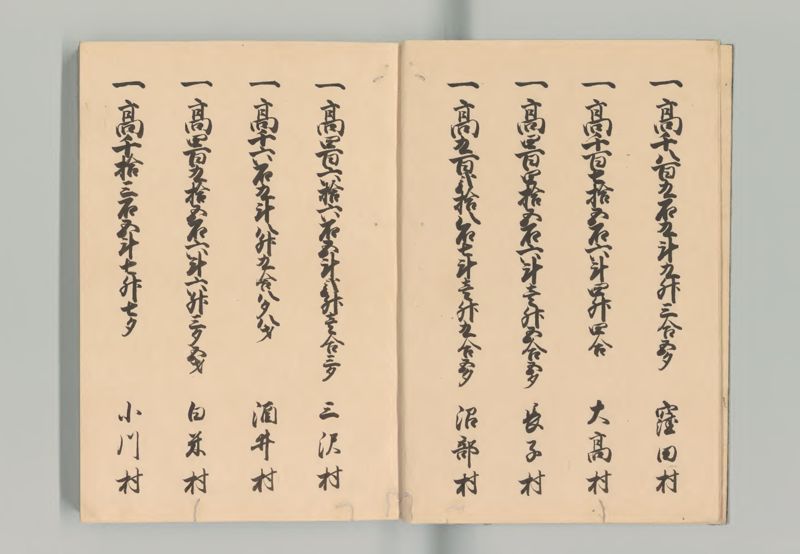 一高千八百九石九斗九升三合五夕 窪田村
一高千百七拾五石六斗四升四合 大高村
一高四百四拾五石六斗壱升五合五夕 長子村
一高五百弐拾八石七斗壱升九合五夕 沼部村
一高四百六拾六石五斗弐升壱合三夕 三沢村
一高千六石九斗八升九合八夕八才 酒井村
一高四百九拾五石六斗六升三夕五才 白米村
一高千拾三石五斗七升七夕 小川村